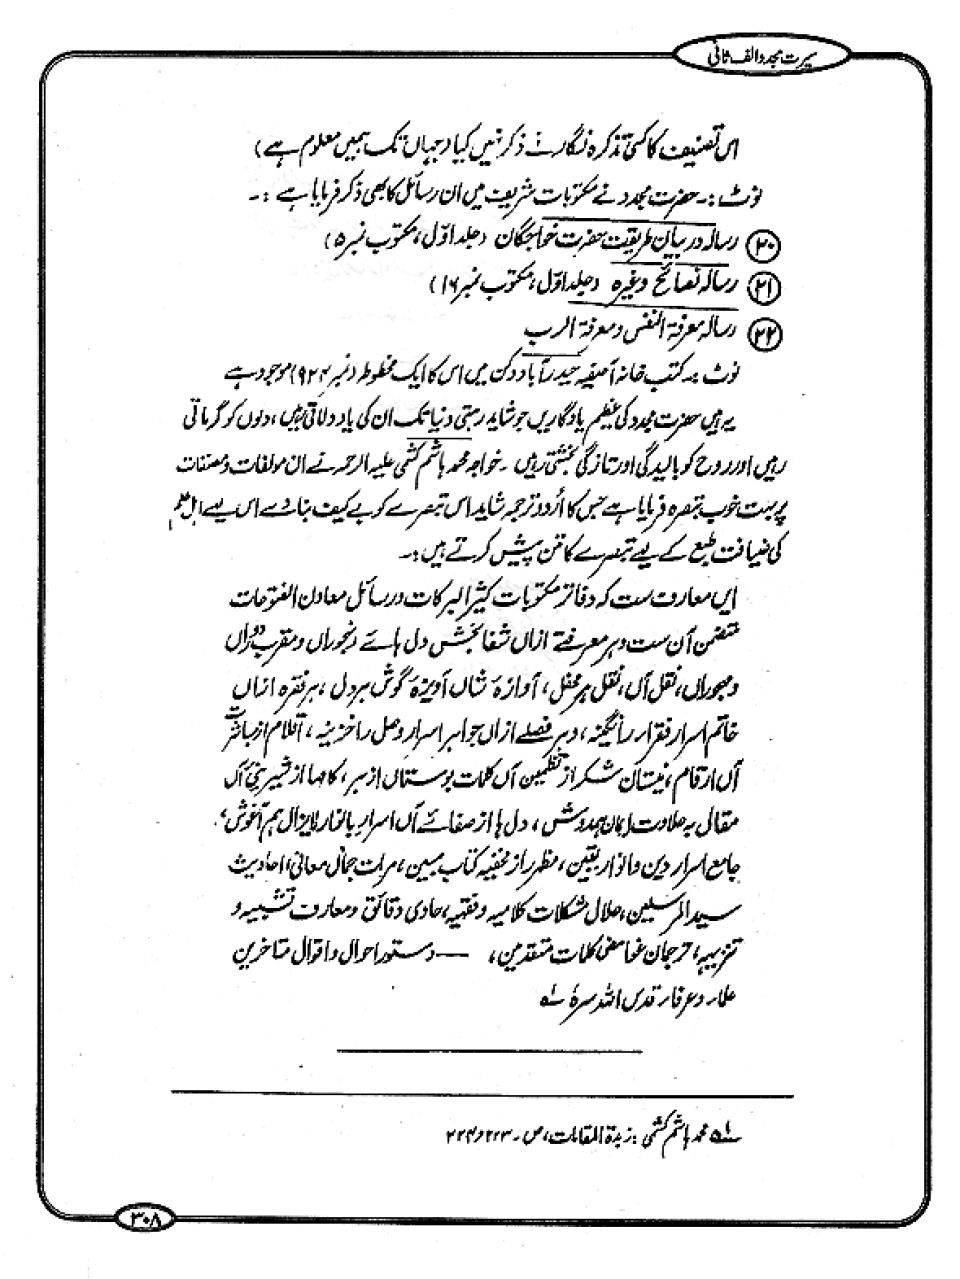 سیرت مجدد الف ثانی
اس تصنیف کا کسی تذکرہ نگار نے ذکر نہیں کیا (جہاں تک ہمیں معلوم ہے)
نوٹ :۔ حضرت مجدد نے مکتوبات شریف میں ان رسائل کا بھی ذکر فرمایا ہے :۔
(۲۰) رسالہ در بیان طریقت حضرت خواجگان (جلد اوّل، مکتوب نمبر ۵)
(۲۱) رسالہ نصائح وغیرہ (جلد اوّل، مکتوب نمبر ۱۶)
(۲۲) رسالہ معرفۃ النفس و معرفۃ الرب
نوٹ :۔ کتب خانہ آصفیہ حیدرآباد دکن میں اس کا ایک مخطوطہ (نمبر ۹۲۴) موجود ہے
یہ ہیں حضرت مجدد کی عظیم یادگاریں جو شاید رہتی دنیا تک ان کی یاد دلاتی رہیں، دلوں کو گرماتی
رہیں اور روح کو بالیدگی اور تازگی بخشتی رہیں ۔ خواجہ محمد ہاشم کشمی علیہ الرحمہ نے ان مولفات و مصنفات
پر بہت خوب تبصرہ فرمایا ہے جس کا اُردو ترجمہ شاید اس تبصرے کو بے کیف بنا دے اس لیے اہل علم
کی ضیافت طبع کے لیے تبصرے کا متن پیش کرتے ہیں :۔
ایں معارف ست کہ دفاتر مکتوبات کثیر البرکات و رسائل معادن الفتوحات
متضمن آن ست و ہر معرفتے ازاں شفا بخش دل ہائے رنجوراں و مقرب دوراں
و مہجوراں، نقل آں، نقل ہر محفل، آوازۂ شاں آویزۂ گوش ہر دل، ہر فقرہ ازاں
خاتم اسرار فقرا را نگینہ، و ہر فصلے ازاں جواہر اسرار وصل را خزینہ، اقلام از مباشرت
آں ارقام، نیستان شکر از آں کلمات بوستاں از بر، کامہا از شیرینی آں
مقال بہ حلاوت ایمان ہمدوش، دل ہا از صفائے آں اسرار با نوار لایزال ہم آغوش،
جامع اسرار دین و انوار یقین، مظہر از خفیہ کتاب مبین، مرات جمال معانی احادیث
سید المرسلین، حلال مشکلات کلامیہ و فقہیہ، حاوی دقائق و معارف تشبیہ و
تنزیہہ، ترجمان غوامض کلمات متقدمین، — دستور احوال و اقوال متاخرین
علماء و عرفاء قدس اللہ سرہٗ ۱ے
۱ے محمد ہاشم کشمی : زبدۃ المقامات، ص ۔ ۲۲۳ و ۲۲۴
۳۰۸